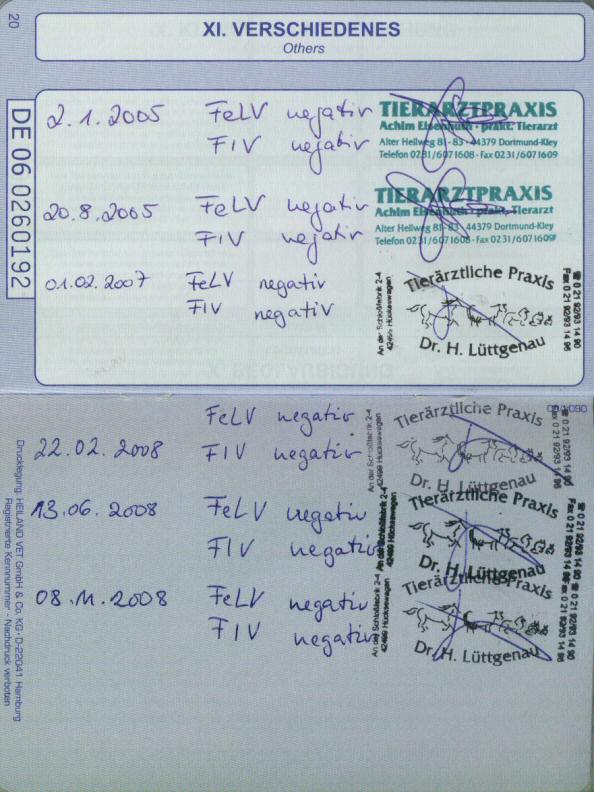 20
XI. VERSCHIEDENES
Others
DE 06 0260192
2.1.2005 FeLV negativ
FIV negativ
TIERARZTPRAXIS
Achim Eisenhuth · prakt. Tierarzt
Alter Hellweg 81 - 83 · 44379 Dortmund-Kley
Telefon 0231/6071608 · Fax 0231/6071609
20.8.2005 FeLV negativ
FIV negativ
TIERARZTPRAXIS
Achim Eisenhuth · prakt. Tierarzt
Alter Hellweg 81 - 83 · 44379 Dortmund-Kley
Telefon 0231/6071608 · Fax 0231/6071609
01.02.2007 FeLV negativ
FIV negativ
Tierärztliche Praxis
Dr. H. Lüttgenau
An der Schloßfabrik 2-4
42499 Hückeswagen
☎ 0 21 92/93 14 90
Fax 0 21 92/93 14 96
FeLV negativ
22.02.2008 FIV negativ
Tierärztliche Praxis
Dr. H. Lüttgenau
An der Schloßfabrik 2-4
42499 Hückeswagen
☎ 0 21 92/93 14 90
Fax 0 21 92/93 14 96
13.06.2008 FeLV negativ
FIV negativ
Tierärztliche Praxis
Dr. H. Lüttgenau
An der Schloßfabrik 2-4
42499 Hückeswagen
☎ 0 21 92/93 14 90
Fax 0 21 92/93 14 96
08.11.2008 FeLV negativ
FIV negativ
Tierärztliche Praxis
Dr. H. Lüttgenau
An der Schloßfabrik 2-4
42499 Hückeswagen
☎ 0 21 92/93 14 90
Fax 0 21 92/93 14 96
Drucklegung: HEILAND VET GmbH & Co. KG · D-22041 Hamburg
Registrierte Kennnummer - Nachdruck verboten